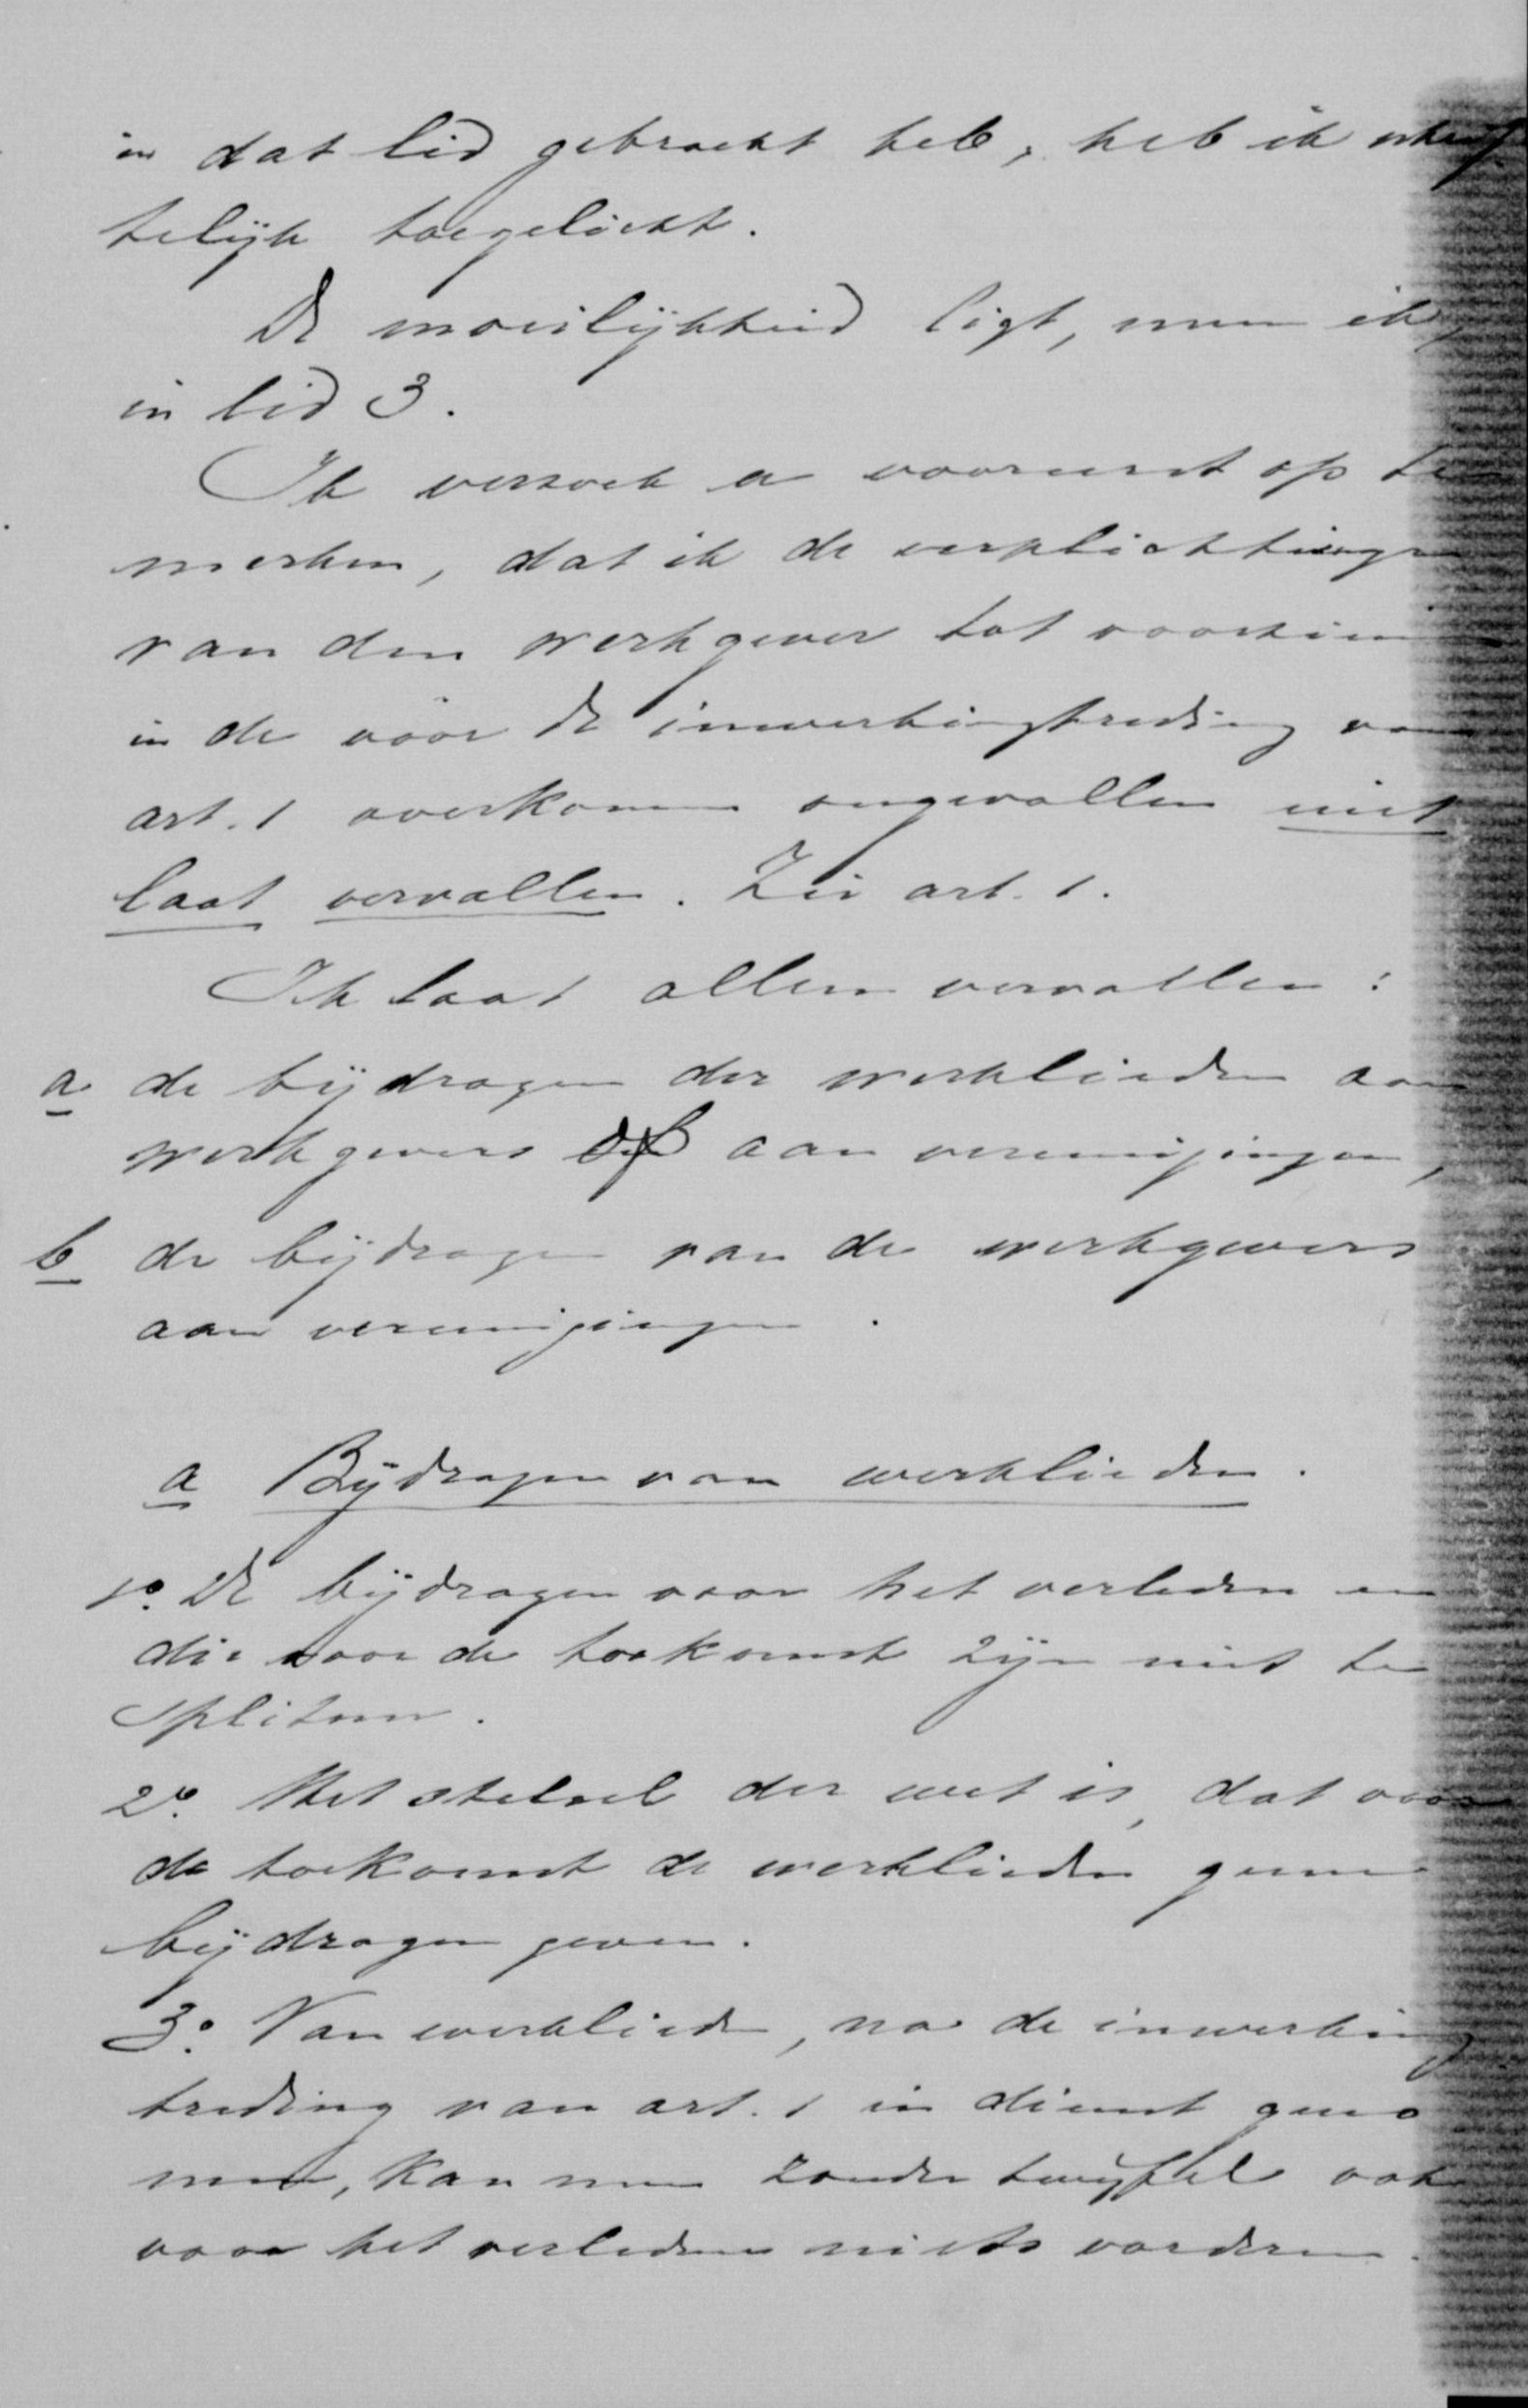 in dat lid gebracht heb, heb ik schrif
telijk toegelicht.
De moeilijkheid ligt, meen ik,
in lid 3.
Ik verzoek u vooreerst op te
merken, dat ik de verplichtingen
van den werkgever tot voorzien
in de vóór de inwerkingtreding van
art. 1 overkomen ongevallen niet
laat vervallen. Zie art. 1.
Ik laat alleen vervallen:
a de bijdragen der werklieden aan
werkgevers of aan vereenigingen,
b de bijdragen van de werkgevers
aan vereenigingen.
a Bijdragen van werklieden.
1o. De bijdragen voor het verleden en
die voor de toekomst zijn niet te
splitsen.
2o. Het stelsel der wet is, dat voor
de toekomst de werklieden geene
bijdragen geven.
3o. Van werklieden, na de inwerking
treding van art. 1 in dienst geno
men, kan men zonder twijfel ook
voor het verleden niets vorderen.